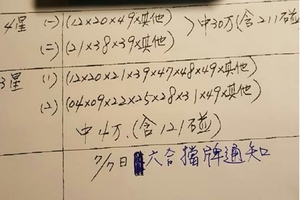 4星 (一) (12×20×49×其他)
(二) (21×38×39×其他) 〉中30万(含211碰)
3星 (1) (12×20×21×39×47×48×49×其他)
(2) (04×09×22×25×28×31×49×其他)
中4万.(含121碰)
7/7日 六合擋牌通知